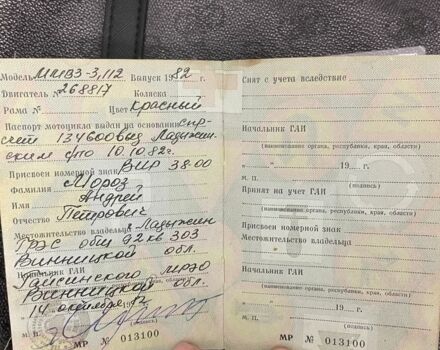 Модель ММВЗ-3,112 Выпуск 1982 г.
Двигатель № 268817 Коляска
Рама № Цвет Красный
Паспорт мотоцикла выдан на основании спр-
счет 134600 выд Ладыжин-
ским о/то 10.10.82г.
Присвоен номерной знак ВИР 38.00
Фамилия Мороз
Имя Андрей
Отчество Петрович
Местожительство владельца г. Ладыжин
ГРЭС общ 92 кв 303
Винницкой обл.
Начальник ГАИ
Гайсинского МРЭО
Винницкой обл.
14 октября
М. П.
МР № 013100
Снят с учета вследствие
Начальник ГАИ
(наименование органа, республики, края, области)
19 г.
М П. (подпись)
Принят на учет ГАИ
(наименование органа, республики, края, области)
Присвоен номерной знак
Местожительство владельца
Начальник ГАИ
(наименование органа, республики, края, области)
19 г.
М. П. (подпись)
МР № 013100